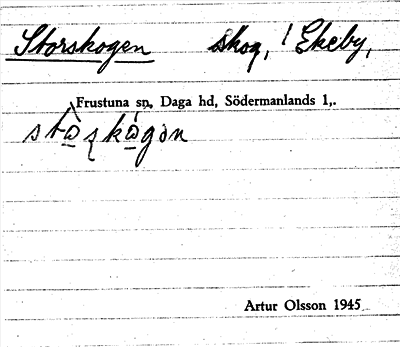 Storskogen skog, ! Ekeby,
Frustuna sn, Daga hd, Södermanlands l,.
Artur Olsson 1945